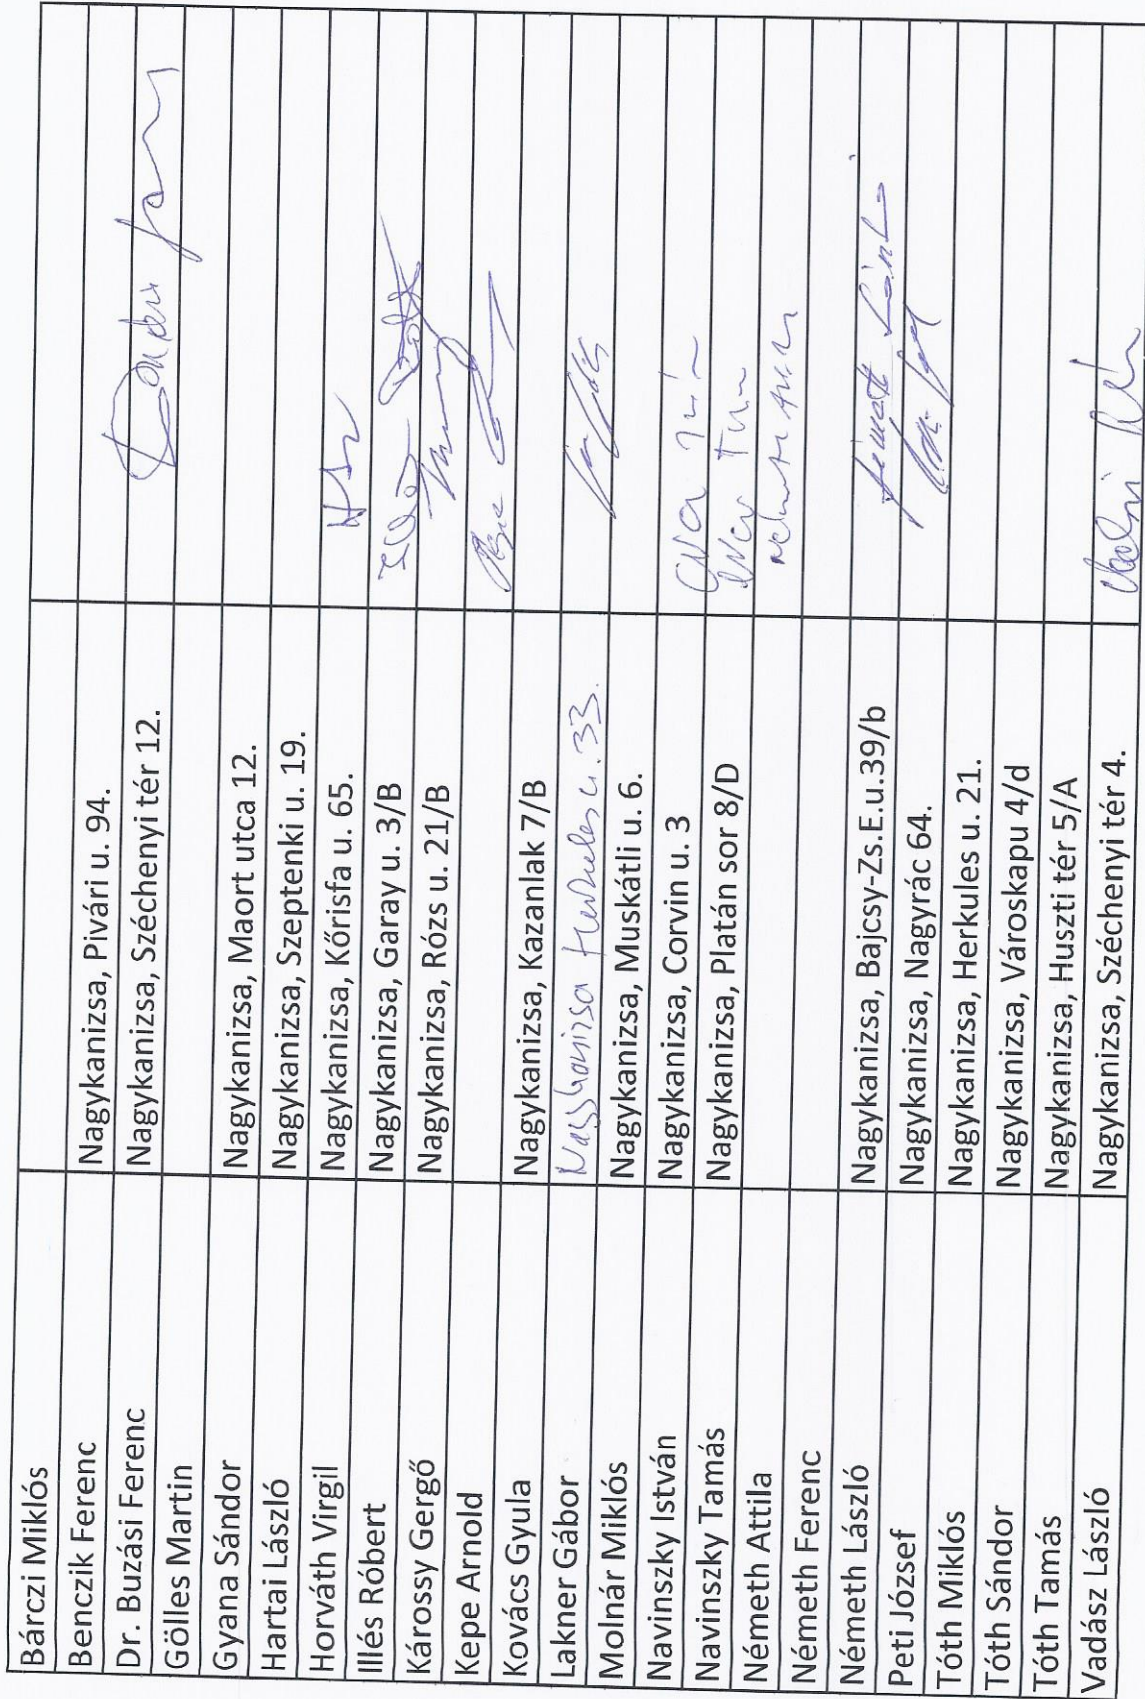 Bárczi Miklós
Benczik Ferenc Nagykanizsa, Pivári u. 94.
Dr. Buzási Ferenc Nagykanizsa, Széchenyi tér 12.
Gölles Martin
Gyana Sándor Nagykanizsa, Maort utca 12.
Hartai László Nagykanizsa, Szeptenki u. 19.
Horváth Virgil Nagykanizsa, Kőrisfa u. 65.
Illés Róbert Nagykanizsa, Garay u. 3/B
Károssy Gergő Nagykanizsa, Rózs u. 21/B
Kepe Arnold
Kovács Gyula Nagykanizsa, Kazanlak 7/B
Lakner Gábor Nagykanizsa Herkules u. 33.
Molnár Miklós Nagykanizsa, Muskátli u. 6.
Navinszky István Nagykanizsa, Corvin u. 3
Navinszky Tamás Nagykanizsa, Platán sor 8/D
Németh Attila
Németh Ferenc
Németh László Nagykanizsa, Bajcsy-Zs.E.u.39/b
Peti József Nagykanizsa, Nagyrác 64.
Tóth Miklós Nagykanizsa, Herkules u. 21.
Tóth Sándor Nagykanizsa, Városkapu 4/d
Tóth Tamás Nagykanizsa, Huszti tér 5/A
Vadász László Nagykanizsa, Széchenyi tér 4.